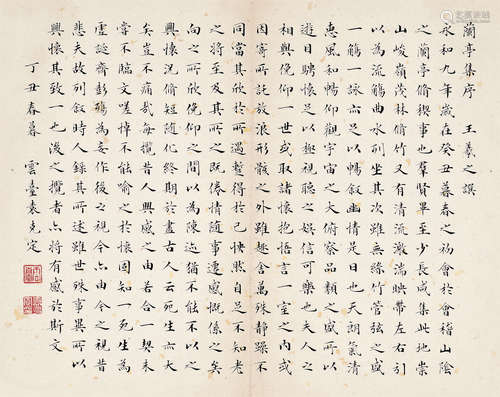 蘭亭集序 王羲之譔
永和九年歲在癸丑暮春之初會於會稽山陰
之蘭亭脩禊事也羣賢畢至少長咸集此地崇
山峻嶺茂林脩竹又有清流激湍映帶左右引
以為流觴曲水列坐其次雖無絲竹管弦之盛
一觴一詠亦足以暢叙幽情是日也天朗氣清
惠風和暢仰觀宇宙之大俯察品類之盛所以
遊目騁懷足以極視聽之娛信可樂也夫人之
相與俛仰一世或取諸懷抱悟言一室之內或
因寄所託放浪形骸之外雖趣舍萬殊靜躁不
同當其欣於所遇暫得於己怏然自足不知老
之將至及其所之既倦情隨事遷感慨係之矣
向之所欣俛仰之間以為陳迹猶不能不以之
興懷況脩短隨化終期於盡古人云死生亦大
矣豈不痛哉每攬昔人興感之由若合一契未
嘗不臨文嗟悼不能喻之於懷固知一死生為
虛誕齊彭殤為妄作後之視今亦由今之視昔
悲夫故列叙時人錄其所述雖世殊事異所以
興懷其致一也後之攬者亦將有感於斯文
丁丑春暮 雲臺袁克定